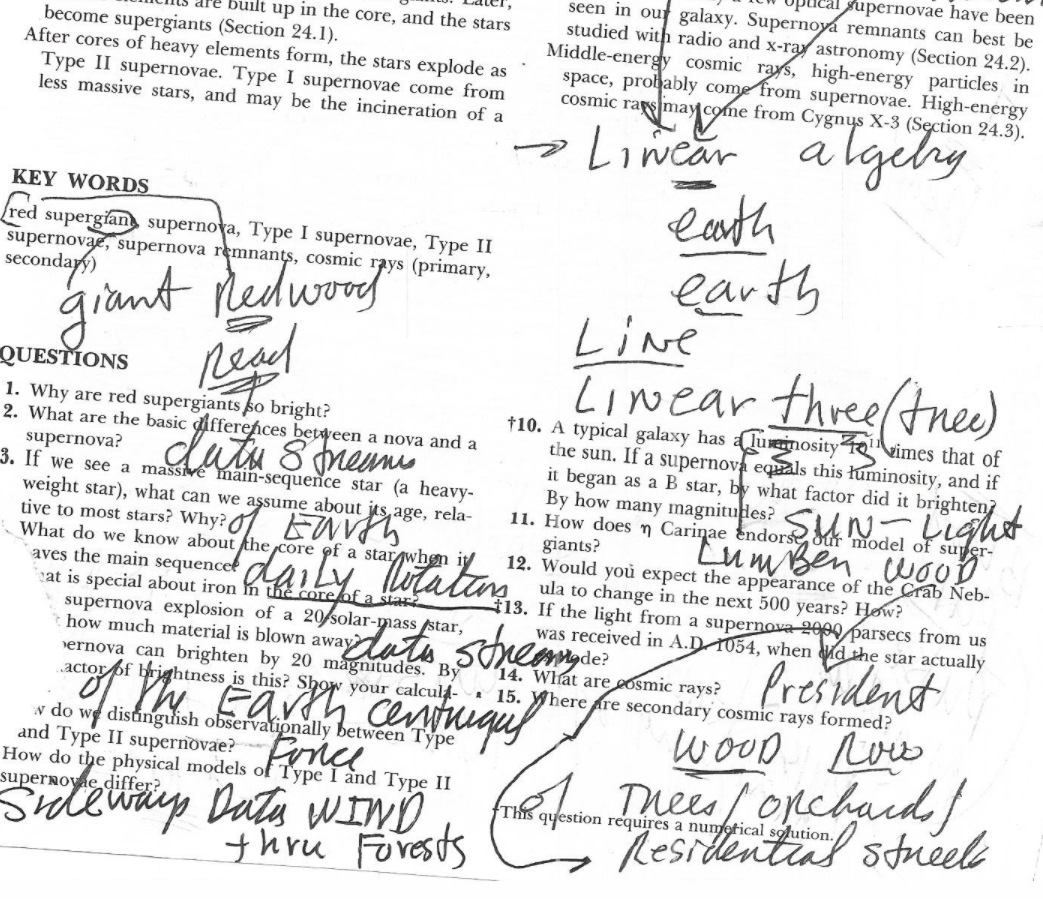 elements are built up in the core, and the stars
become supergiants (Section 24.1).
After cores of heavy elements form, the stars explode as
Type II supernovae. Type I supernovae come from
less massive stars, and may be the incineration of a
KEY WORDS
red supergiant, supernova, Type I supernovae, Type II
supernovae, supernova remnants, cosmic rays (primary,
secondary)
giant Redwood
Read
QUESTIONS
1. Why are red supergiants so bright?
2. What are the basic differences between a nova and a
supernova?
data streams
3. If we see a massive main-sequence star (a heavy-
weight star), what can we assume about its age, rela-
tive to most stars? Why?
of EARth
What do we know about the core of a star when it
aves the main sequence?
daily Rotation
at is special about iron in the core of a star?
supernova explosion of a 20-solar-mass star,
how much material is blown away?
data streams
ernova can brighten by 20 magnitudes. By
actor of brightness is this? Show your calcula-
of the EARth
w do we distinguish observationally between Type
and Type II supernovae?
Force
How do the physical models of Type I and Type II
supernovae differ?
Sideways Data WIND
thru Forests
few optical supernovae have been
seen in our galaxy. Supernova remnants can best be
studied with radio and x-ray astronomy (Section 24.2).
Middle-energy cosmic rays, high-energy particles in
space, probably come from supernovae. High-energy
cosmic rays may come from Cygnus X-3 (Section 24.3).
→ Linear algebra
earth
earth
Line
Linear three (tree)
†10. A typical galaxy has a luminosity times that of
the sun. If a supernova equals this luminosity, and if
it began as a B star, by what factor did it brighten?
By how many magnitudes?
SUN-Light
11. How does η Carinae endorse our model of super-
giants?
Lumber WOOD
12. Would you expect the appearance of the Crab Neb-
ula to change in the next 500 years? How?
†13. If the light from a supernova 2000 parsecs from us
was received in A.D. 1054, when did the star actually
14. What are cosmic rays?
President
15. Where are secondary cosmic rays formed?
WOOD Row
of Trees/orchards/
†This question requires a numerical solution.
Residential streets